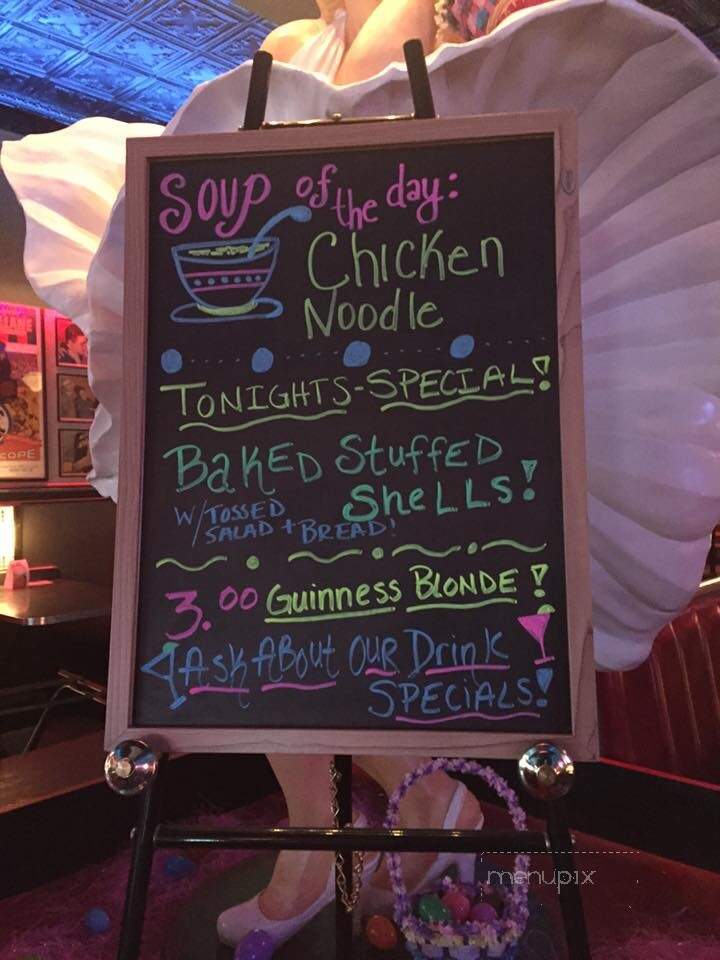 Soup of the day:
Chicken
Noodle
TONIGHTS-SPECIAL!
BAKED STUFFED
SHELLS!
W/TOSSED
SALAD + BREAD!
3.00 Guinness BLONDE!
ASK ABOUT OUR DRINK
SPECIALS!
COPE
menupix